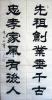 先祖創業垂千古
忠孝家風有後人